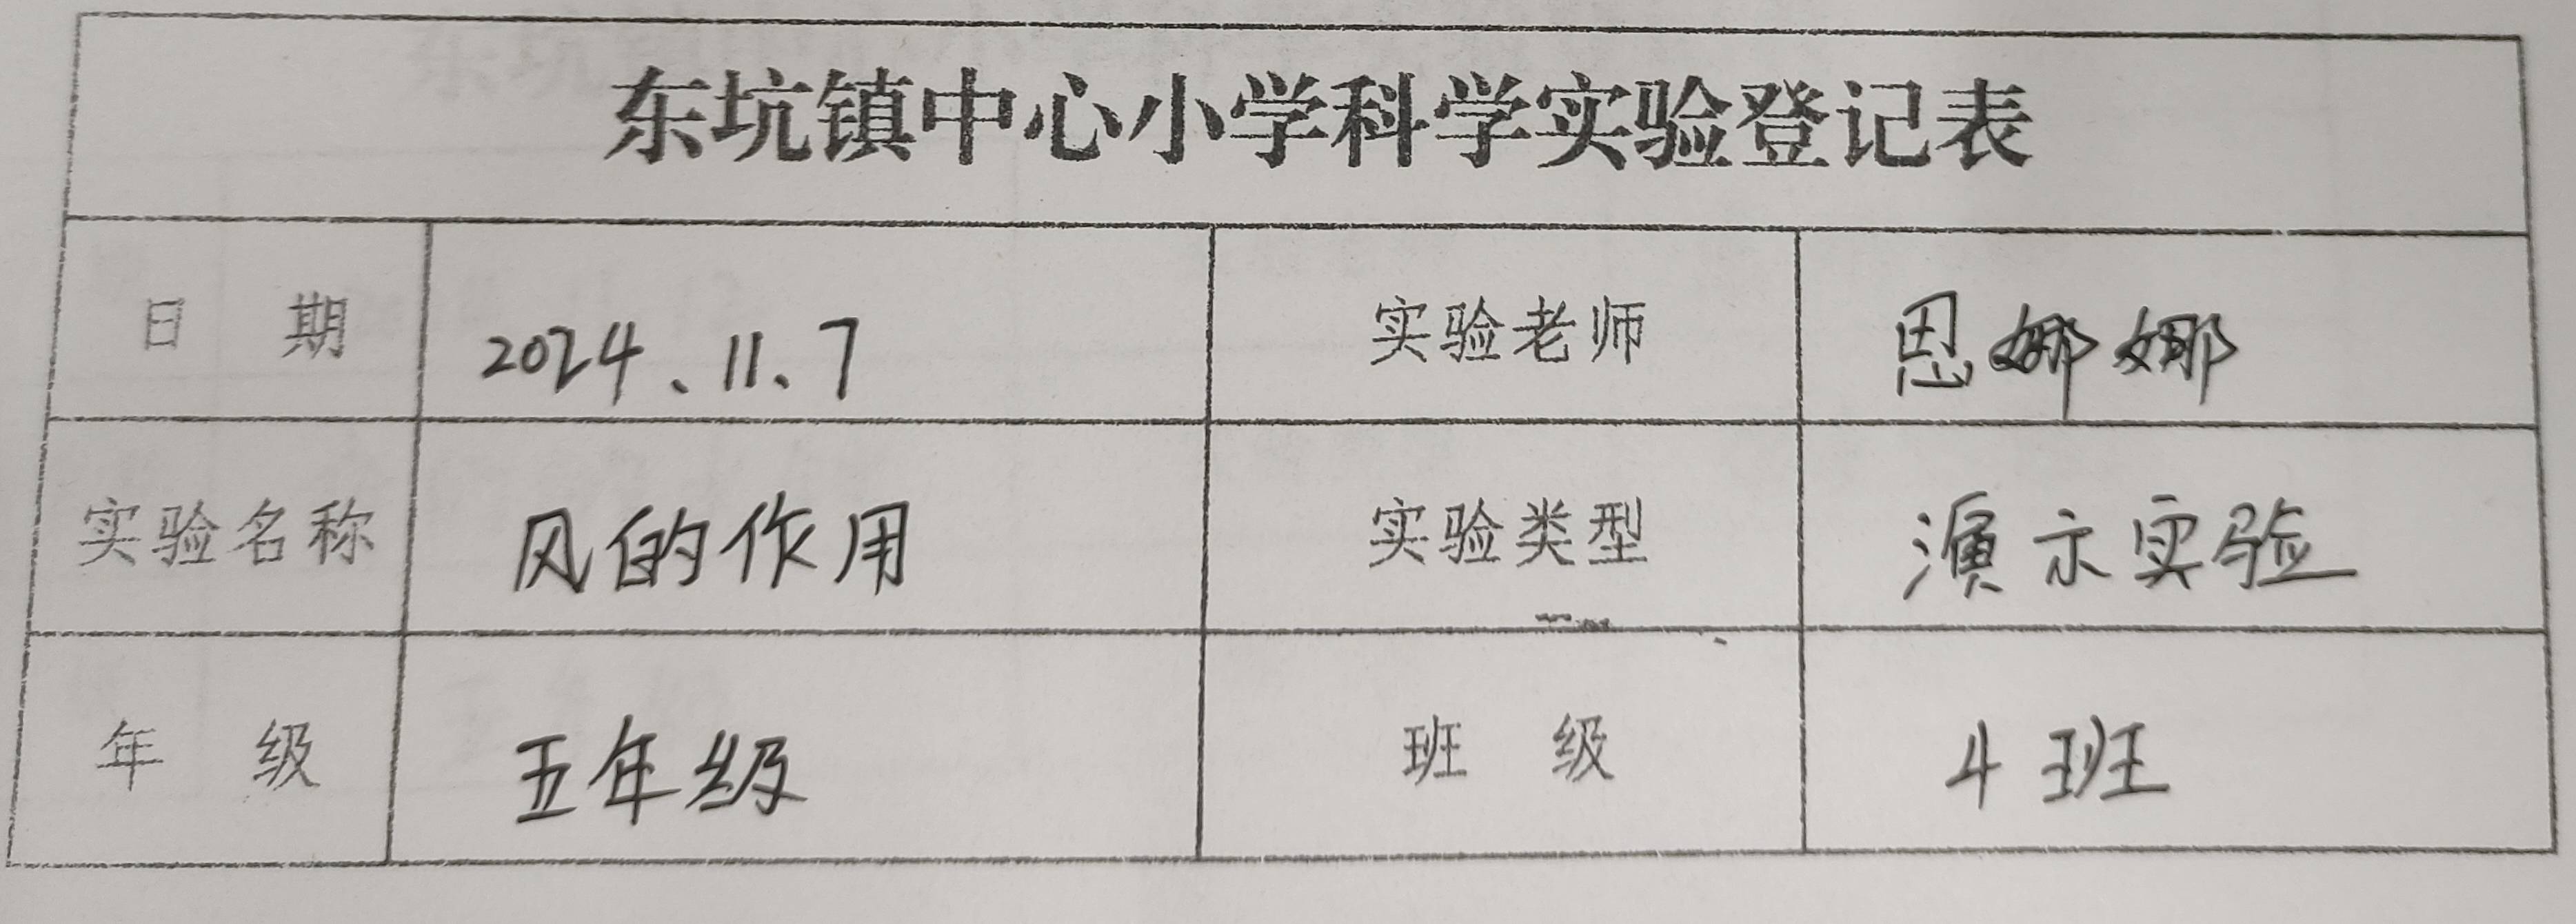 东坑镇中心小学科学实验登记表
日 期 2024.11.7 实验老师 恩娜娜
实验名称 风的作用 实验类型 演示实验
年 级 五年级 班 级 4班